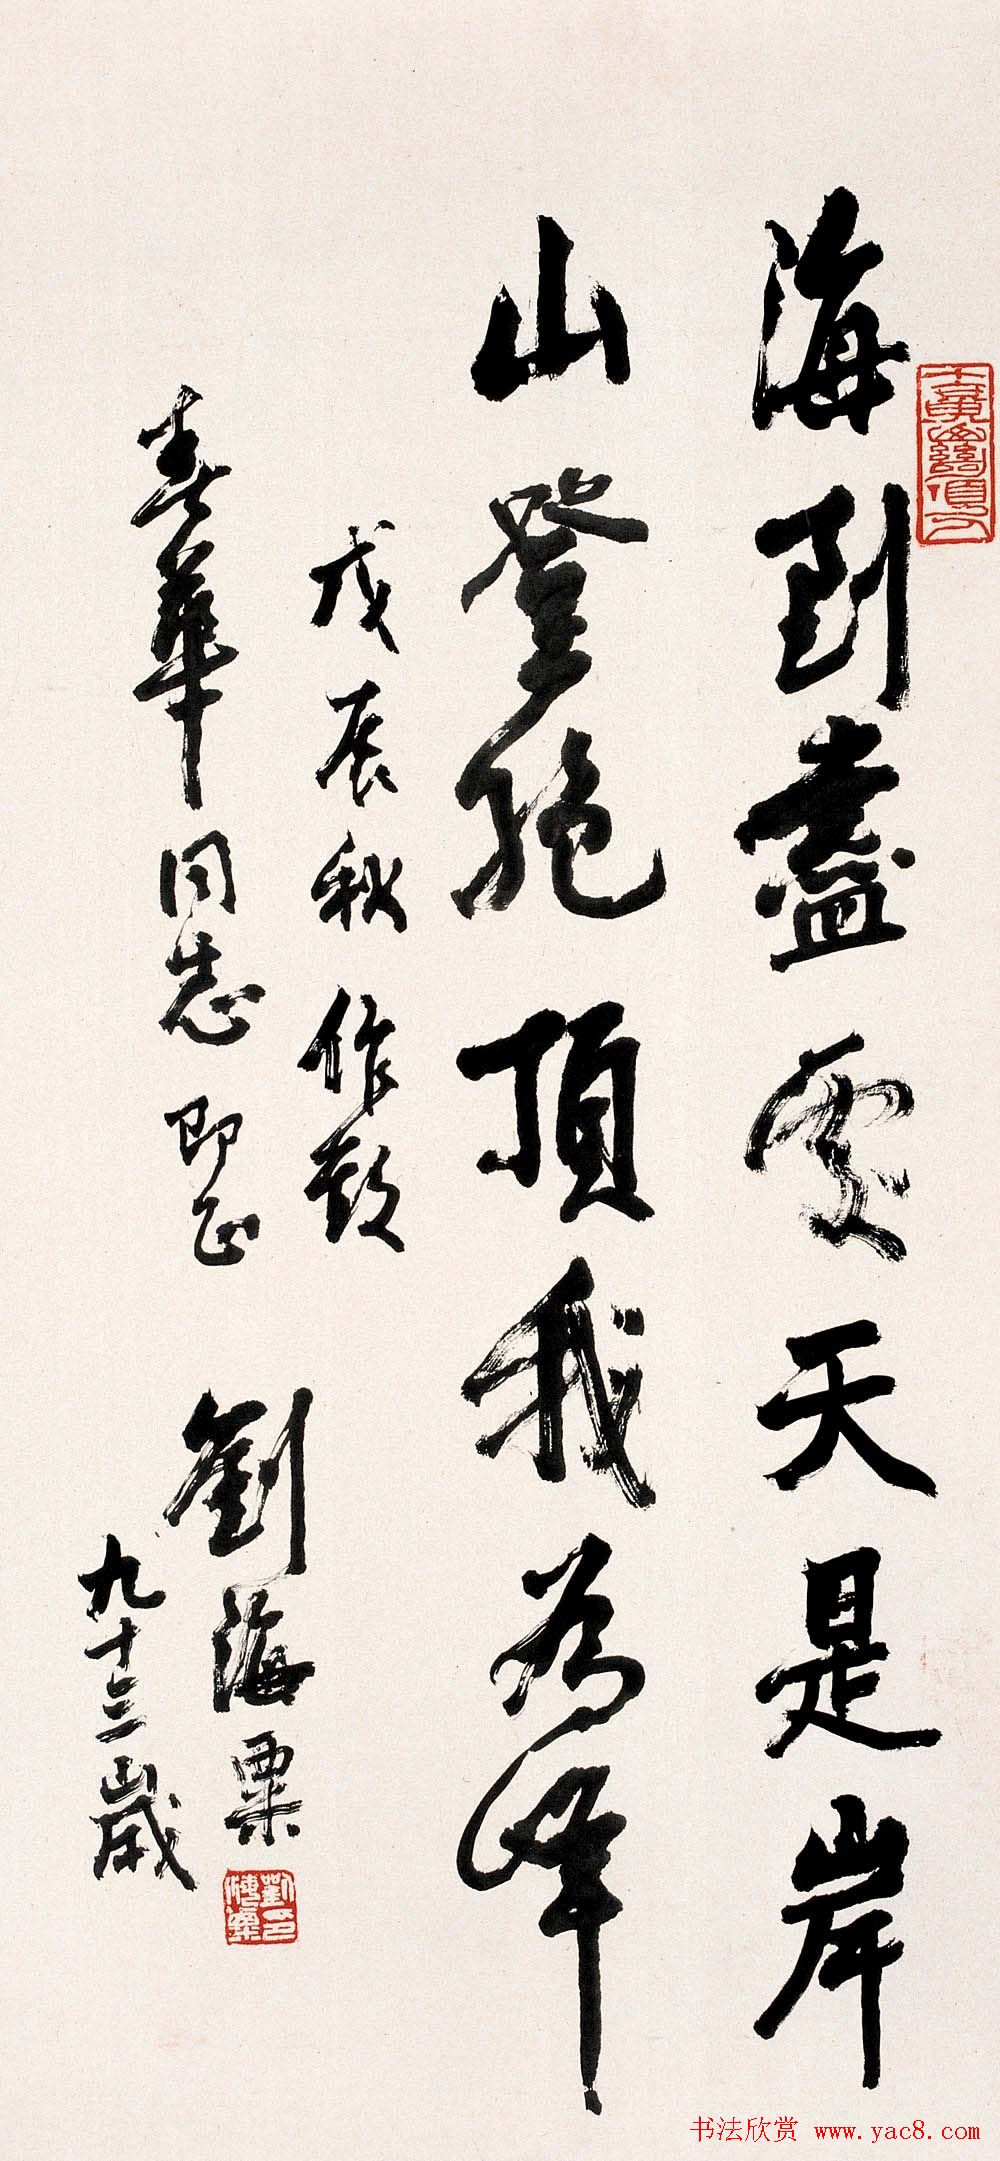 海到盡處天是岸
山登絕頂我為峰
戊辰秋作於
春華同志即正
劉海粟
九十三歲
劉海粟印
书法欣赏 www.yac8.com